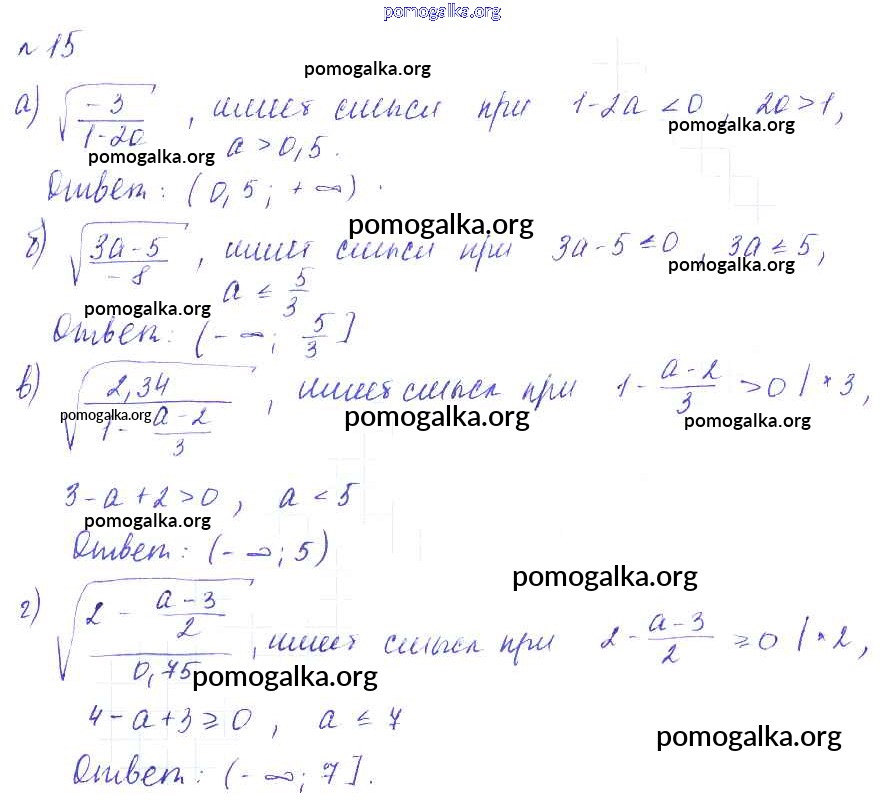 pomogalka.org
№ 15
pomogalka.org
а) √(-3/(1-2a)), имеет смысл при 1-2a < 0, 2a > 1,
pomogalka.org
pomogalka.org a > 0,5.
Ответ: (0,5; +∞).
pomogalka.org
б) √((3a-5)/(-8)), имеет смысл при 3a-5 ≤ 0, 3a ≤ 5,
pomogalka.org
pomogalka.org a ≤ 5/3
Ответ: (-∞; 5/3]
в) √(2,34/(1 - (a-2)/3)), имеет смысл при 1 - (a-2)/3 > 0 | * 3,
pomogalka.org pomogalka.org pomogalka.org
3-a+2>0, a < 5
pomogalka.org
Ответ: (-∞; 5)
pomogalka.org
г) √((2 - (a-3)/2)/0,75), имеет смысл при 2 - (a-3)/2 ≥ 0 | * 2,
pomogalka.org
4-a+3 ≥ 0, a ≤ 7
pomogalka.org
Ответ: (-∞; 7].